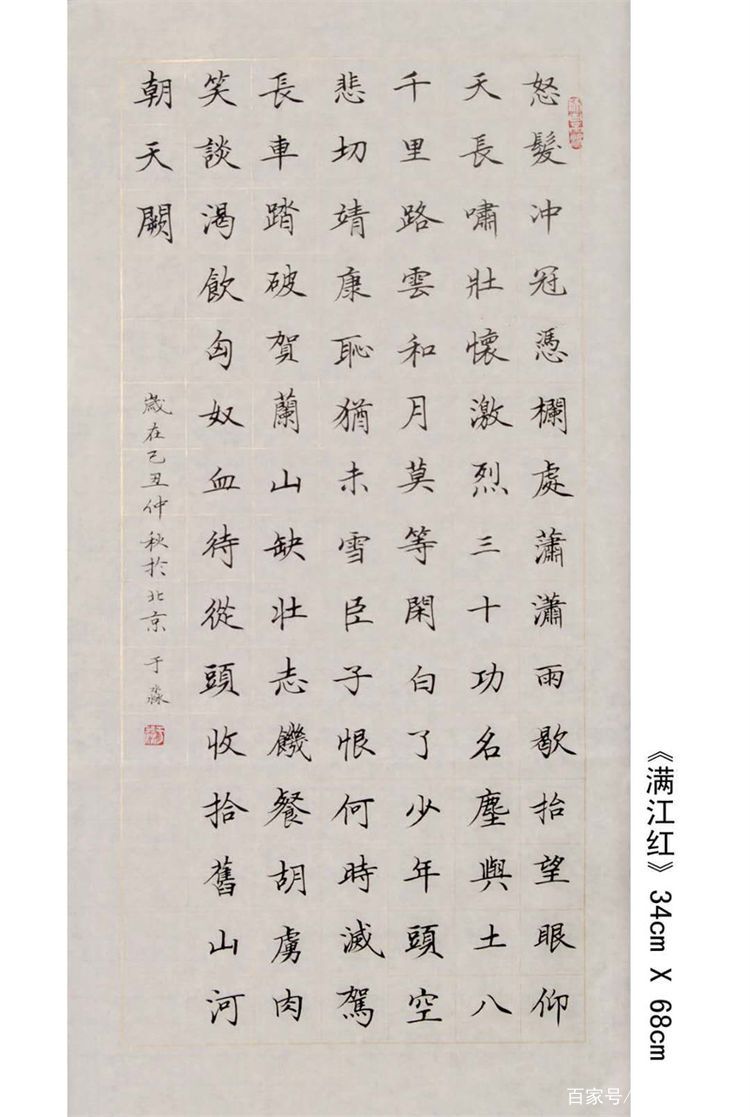 怒髮冲冠憑欄處瀟瀟雨歇抬望眼仰
天長嘯壯懷激烈三十功名塵與土八
千里路雲和月莫等閑白了少年頭空
悲切靖康恥猶未雪臣子恨何時滅駕
長車踏破賀蘭山缺壯志饑餐胡虜肉
笑談渴飲匈奴血待從頭收拾舊山河
朝天闕
歲在己丑仲秋於北京 于淼
《满江红》 34cm X 68cm
百家号/